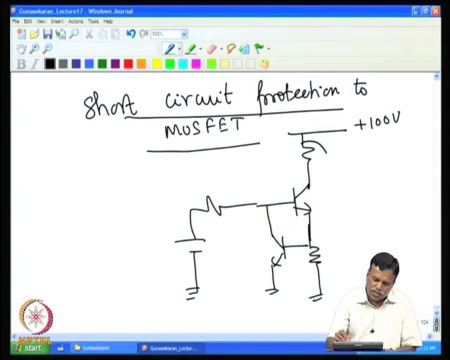 Gunasekaran_Lecture17 - Windows Journal
File Edit View Insert Actions Tools Help
100%
B I
Short circuit protection to
MOSFET
+100V
NPTEL
start
Gunasekaran
Gunasekaran_Lectu...